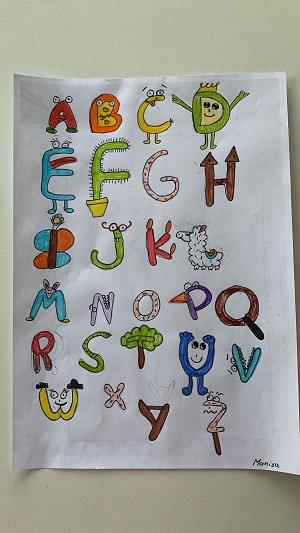 A B C D
E F G H
I J K L
M N O P Q
R S T U V
W X Y Z
Manisa